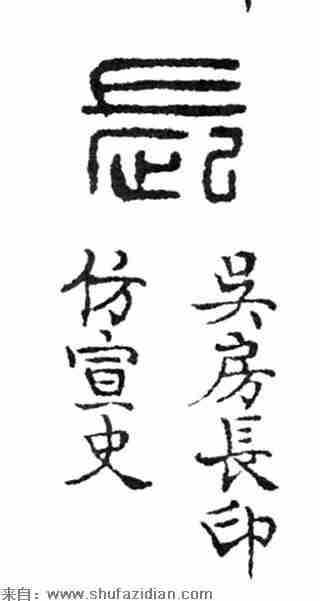 長
吳房長印
仿宣史
来自：www.shufazidian.com